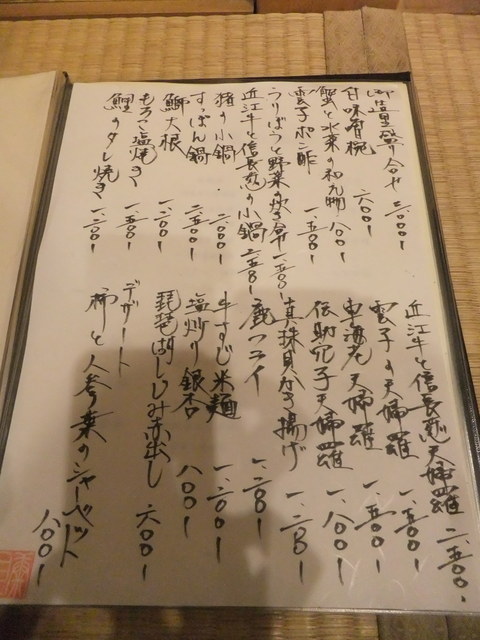 御造り盛合せ 二、〇〇〇
甘味有椀 六〇〇
蟹と水菜の和え物 八〇〇
雲子ポン酢 一、五〇〇
うりぼうと野菜の炊き合せ 一、五〇〇
近江牛と信長葱の小鍋 二、五〇〇
猪の小鍋 二、〇〇〇
すっぽん鍋 二、五〇〇
鰤大根 一、二〇〇
もろこ塩焼き 一、五〇〇
鯉のタレ焼き 一、二〇〇
近江牛と信長葱天婦羅 二、五〇〇
雲子の天婦羅 一、五〇〇
天婦羅 一、五〇〇
穴子天婦羅 一、八〇〇
真珠貝かき揚げ 一、二〇〇
鹿フライ 一、二〇〇
牛すじ米麺 一、二〇〇
塩炒り銀杏 八〇〇
琵琶湖しじみ赤出し 六〇〇
デザート
柿と人参葉のシャーベット 八〇〇